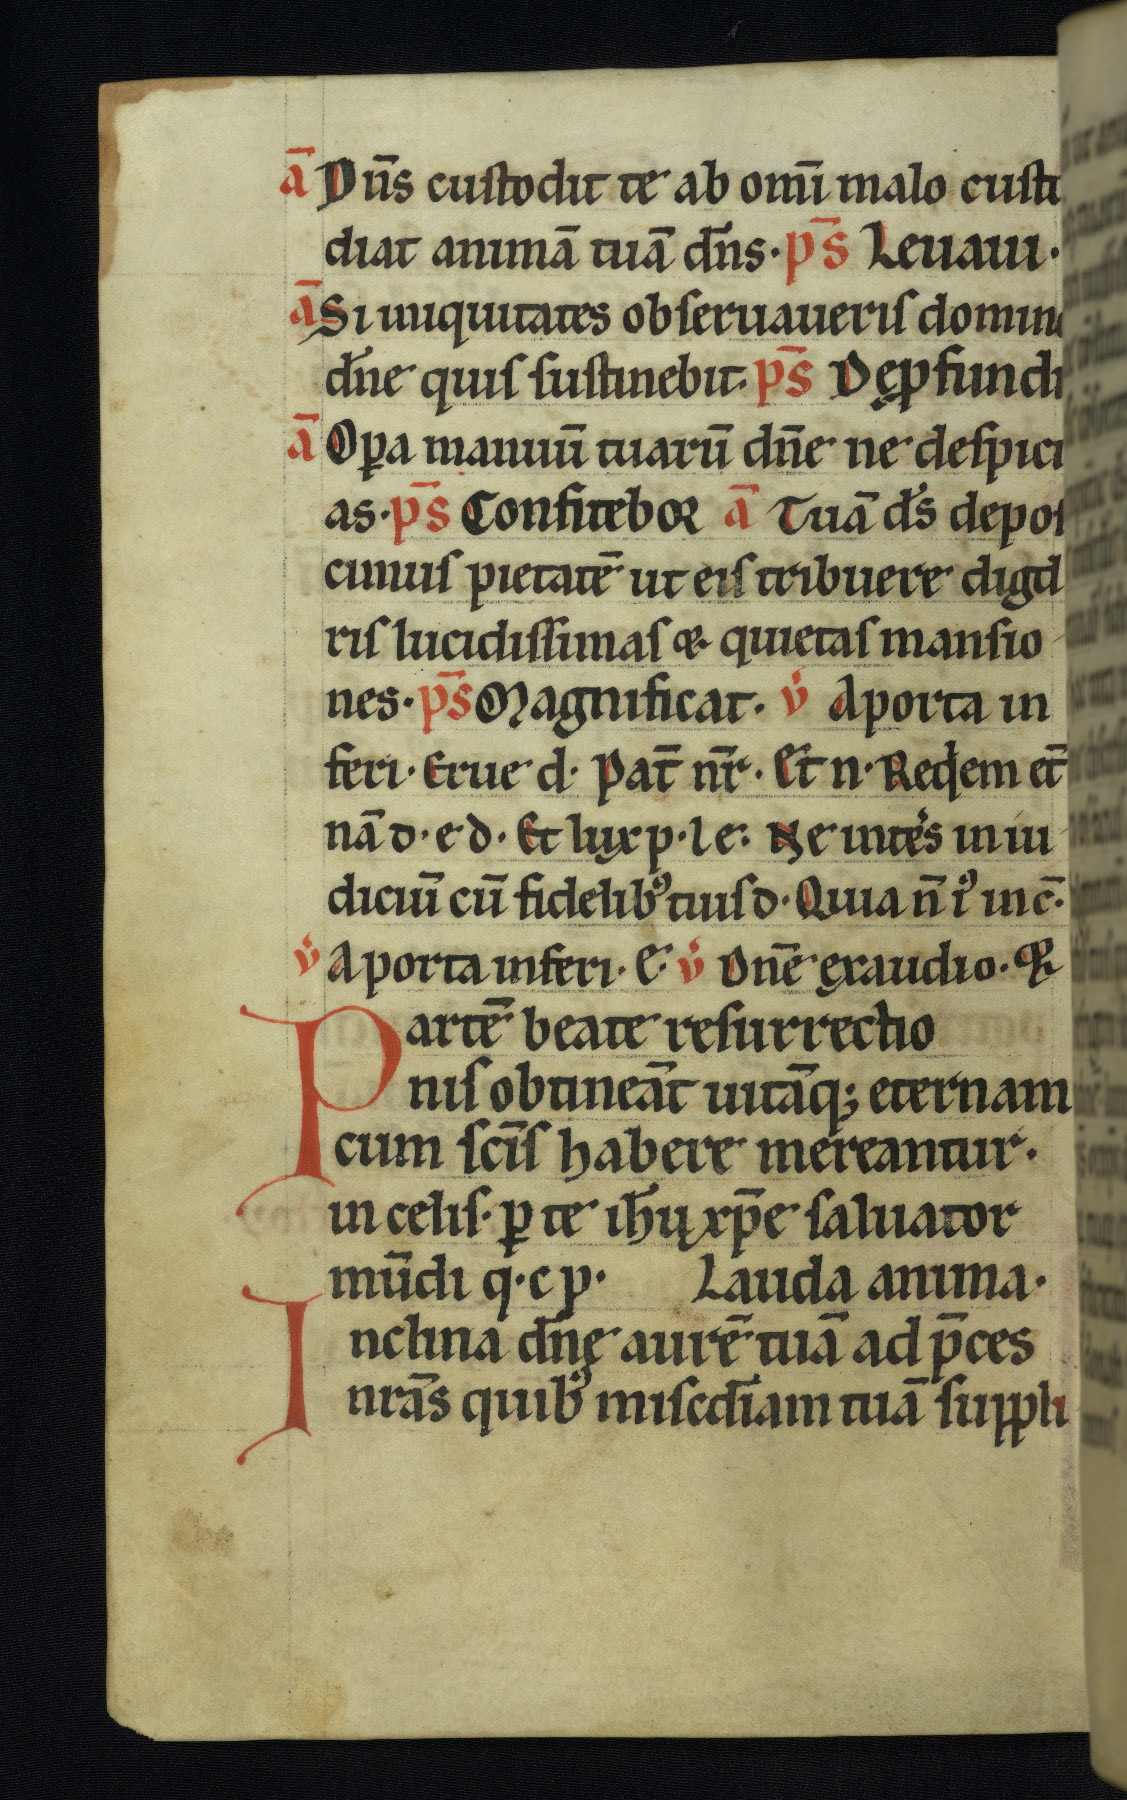 ā Dn̄s custodit te ab om̄i malo custo
diat animā tuā dn̄s· ps̄ Leuaui·
ā Si iniquitates obseruaueris domine
dn̄e quis sustinebit· ps̄ De ꝓfundis
ā Oꝑa manuū tuarū dn̄e ne despici
as· ps̄ Confitebor ā Tuā ds̄ depos
cimus pietatē ut eis tribuere dig̅
ris lucidissimas & quietas mansio
nes· ps̄ Magnificat· v̄ A porta in
feri· Erue d· Pat̄ nr̄· Et n· Reqem et̄
nā d· e d· Et lux p· l e· Ne intes in iu
diciū cū fidelibꝰ tuis d· Quia n̄ i in c̄·
v̄ A porta inferi· E· v̄ Dn̄e exaudi o· R
Partē beate resurrectio
nis obtineāt uitāq; eternam
cum sc̄is habere mereantur·
in celis· ꝑ te ih̄u xp̄e saluator
mūdi q· c p· Lauda anima·
Inclina dn̄e aurē tuā ad p̄ces
nr̄as quibꝰ misc̄diam tuā suppli